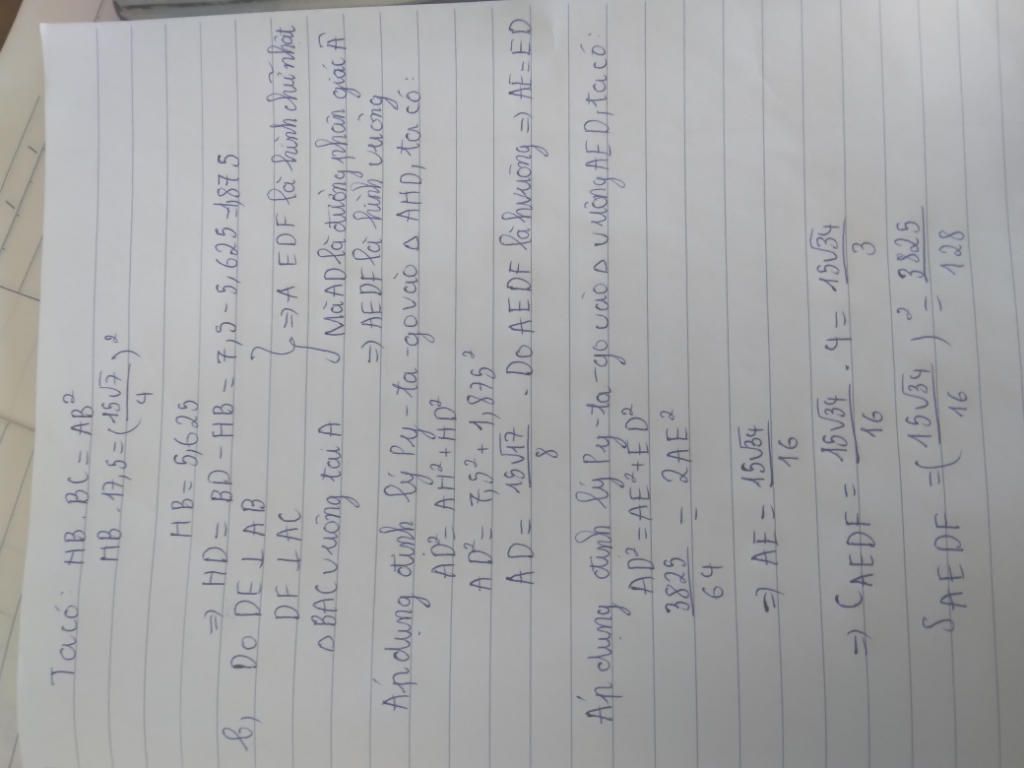 Ta có: HB. BC = AB²
HB. 17,5 = (15√7/4)²
HB = 5,625
=> HD = BD - HB = 7,5 - 5,625 = 1,875
b, Do DE ⊥ AB
DF ⊥ AC } => A EDF là hình chữ nhật
Δ BAC vuông tại A
Mà AD là đường phân giác Â
=> AEDF là hình vuông
Áp dụng định lý Py-ta-go vào Δ AHD, ta có:
AD² = AH² + HD²
AD² = 7,5² + 1,875²
AD = 15√17/8 . Do AEDF là hvuông => AE = ED
Áp dụng định lý Py-ta-go vào Δ vuông AED, ta có:
AD² = AE² + ED²
3825/64 = 2AE²
=> AE = 15√34/16
=> C AEDF = 15√34/16 . 4 = 15√34/3
S AEDF = (15√34/16)² = 3825/128